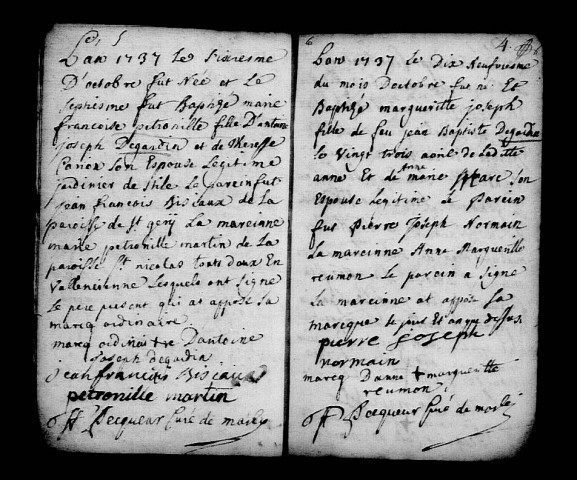 5
Lan 1737 le sixiesme
D'octobre fut Née et Le
sephiesme fut Baptizé marie
francoise petronille fille D'antoine
joseph Degardin et de
son Espouse Legitime
jardinier de Stile Le parein fut
jean francois Biseaux de La
paroisse de St gery La mareinne
marie petronille martin de La
paroisse St nicolas touts deux En
Vallencienne Lesquels ont signé
Le pere present qui at apposé sa
marcq ordinaire
marcq ordinaire + de Dantoine
joseph degardin
Jean francois Biseau
petronille martin
Pecqueur Curé de
6
4
Lan 1737 le Dix Neufviesme
du mois Doctobre fut né Et
Baptizé margueritte joseph
fille de feu jean Baptiste Degardin
le vingt trois avril de laditte
anne Et de marie Anne son
Espouse Legitime Le Parein
fut Pierre joseph Normain
La mareinne Anne Margueritte
reumon Le parein a Signé
La mareinne at aposé La
marcque le jour Et an que dessus
pierre joseph
normain
marcq D'anne + margueritte
reumon
Pecqueur Curé de